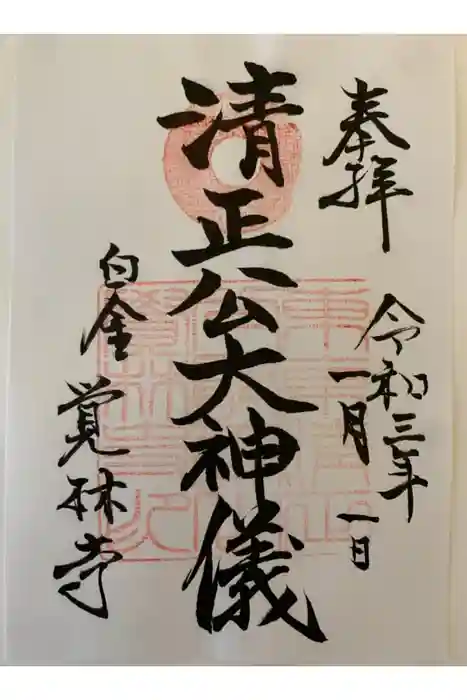 奉拝
令和三年
一月一日
清正公大神儀
白金
覚林寺